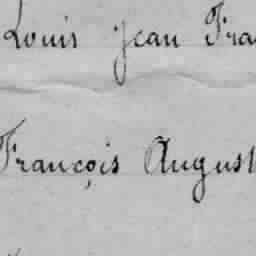 Louis Jean Fra
François August